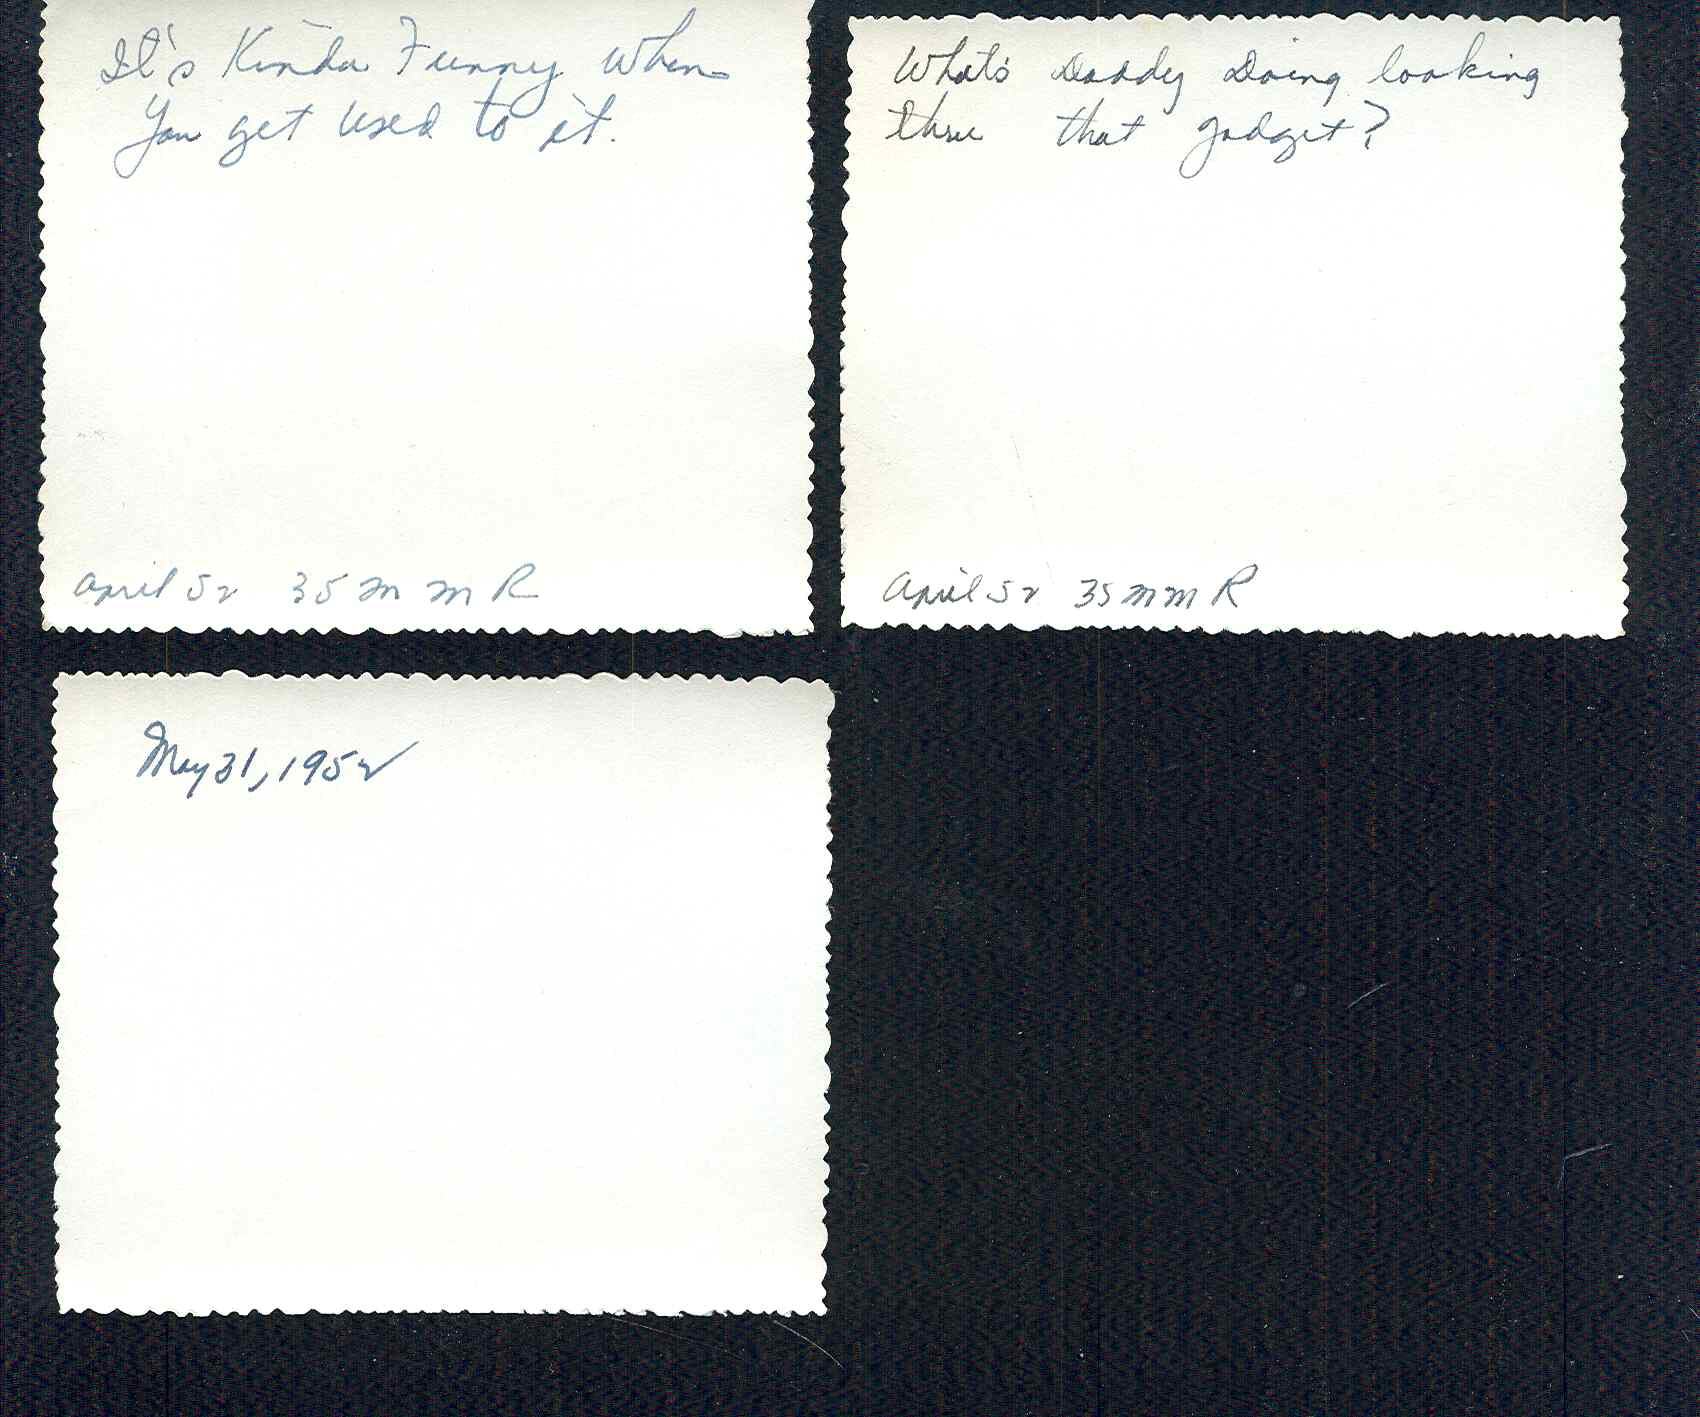 It's Kinda Funny When
You get used to it.
April 52 35 m m R
What's Daddy Doing looking
thru that gadget?
April 52 35 m m R
May 31, 1952